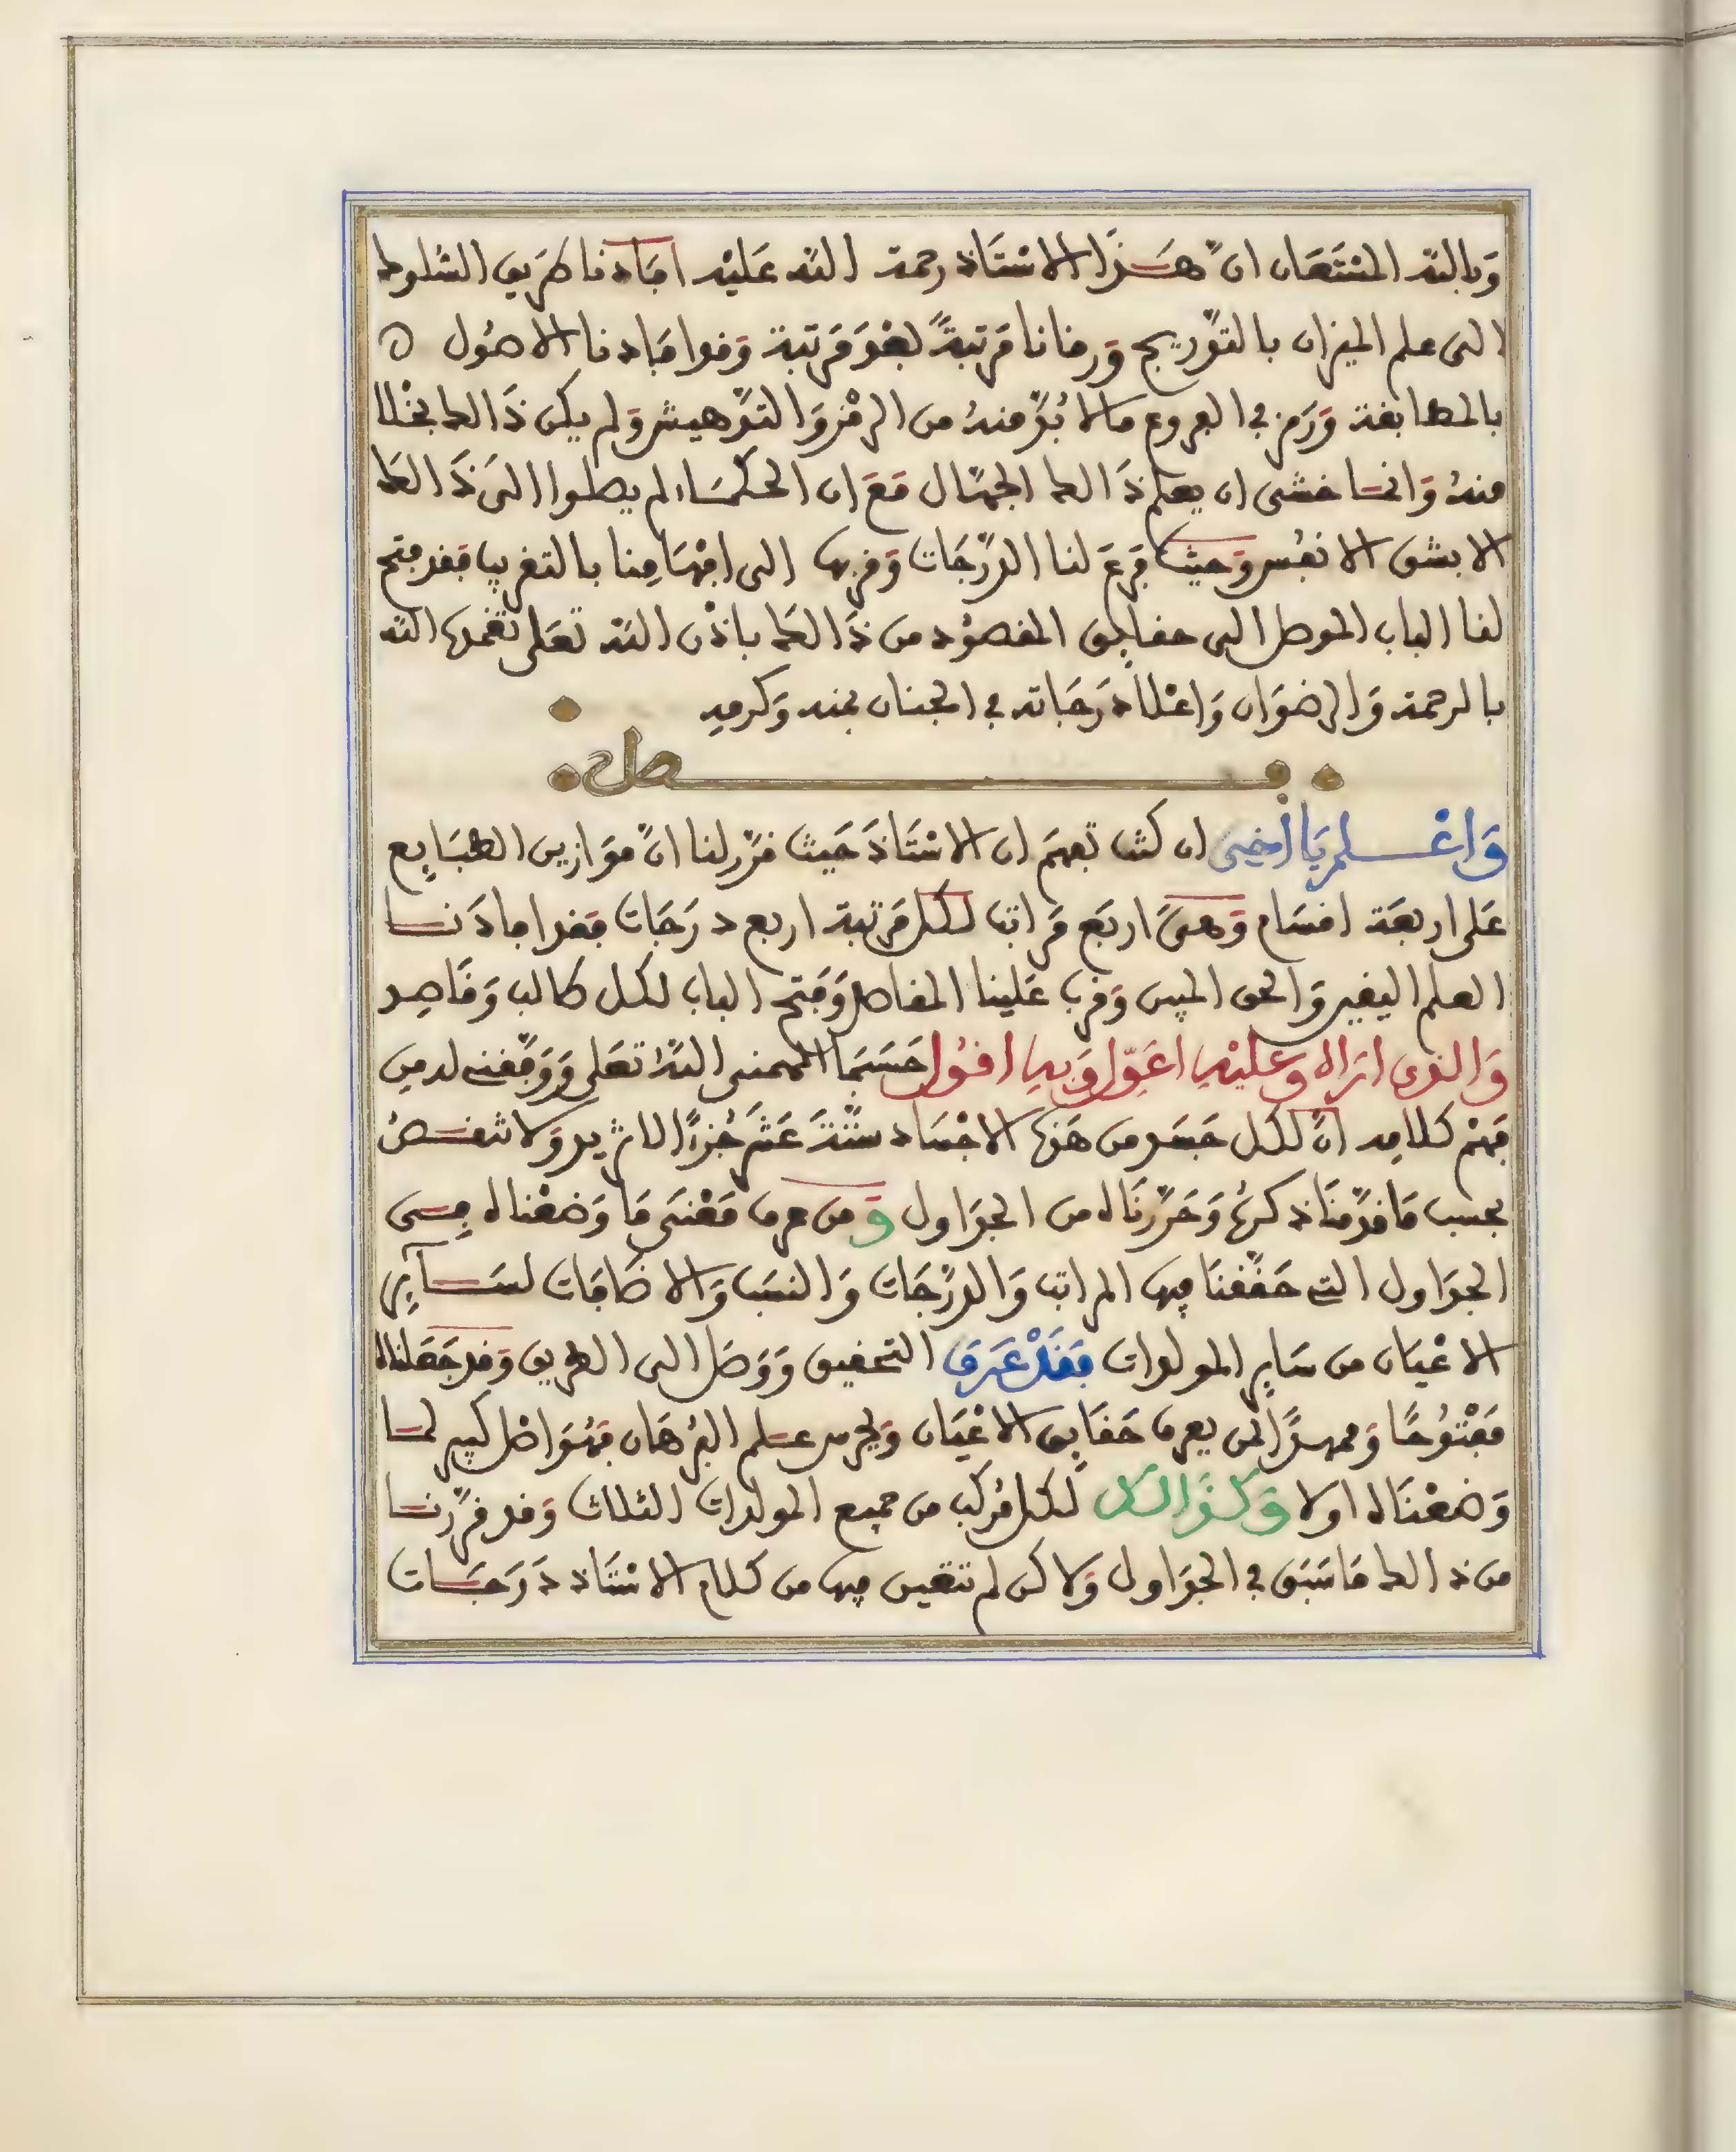 وَبالله المُسْتَعَان انَّ هَذَا الاسْتَاذ رحمة الله عَليْه افَادنا طَريق السُّلوك
الى علم الميزان بالتدْريج وَرقانا مَرتبةً بَعْدَ مَرتبة وَقد افَادنا الاصُول
بالمطابقة وَرَمز في الفروع مالا بُدَّ منهُ من الرمْز وَالتدْهيش وَلم يكن ذَالك بخْلا
منهُ وَانما خشى ان يعلم ذَالك الجهّال مَعَ ان الحكمَاء لم يصلوا الى ذَالك
الا بشق الانفُس وَحيث فرّعَ لنا الدرَجَات وَقربها الى افْهَامِنا بالتقريب فقد فتح
لنا الباب الموصل الى حقايق المقصُود من ذَالك باذْن الله تعَلى تغمدهُ الله
بالرحمة وَالرضوَان وَاعْلا دَرَجَاته في الجنان بمنه وَكرمهِ
فصل
وَاعْلم يَا أخِى ان كنت تفهَم ان الاسْتَاذَ حَيث قرّر لنا انَّ موَازين الطبَايع
عَلى اربعَة اقسَام وَهىَ اربَع مَراتب لكل مَرتبة اربع دَرَجَات فقد افادَنا
العلم اليقين وَالحق المبين وَقرب عَلينا المقاصد وَفتح الباب لكل طالب وَقَاصِد
وَالذى ارَاه وعليْهِ اعَوّل وَبهِ اقوُل حَسَبمَا الهمنى اللهُ تعَلى وَوَفّقنى له مِن
فهْم كلامِه انَّ لكل جَسَد من هَذه الاجْسَاد ستّةَ عَشَر جُزءًا لا تزيد وَلا تنقصُ
بحسب مَا قدّمنَا ذكرهُ وَحَرّرنَاه من الجدَاول وَمن عرف مَعْنَى مَا وَضعْناه في
الجدَاول التى حَقّقنَا فيها المراتب وَالدرَجَات وَالنسَب وَالاضَافات لسَآير
الاعْيَان من سَاير المولدات فقَدْ عَرَف التحقيق وَوَصَل الى الطريق وَقد جَعَلناه
مَفْتوُحًا وَممهدًا لمن يعرف حَقَايق الاعْيَان وَيحرر علم البُرْهَان فهُوَ اصْل كبير لما
وَضعْنَاه اولا وَكذَالك لكل مُركب من جميع المولدات الثلاث وَقد قرّرنا
من ذالك مَا سَبَق في الجدَاول وَلاكن لم تتعين فيها من كلام الاسْتَاذ دَرَجَات